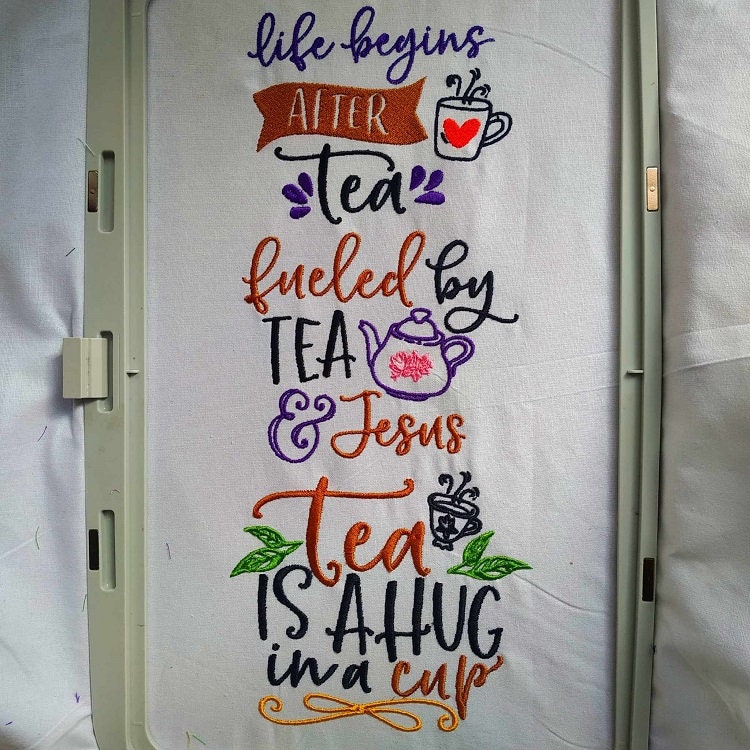 life begins
AFTER
tea
fueled by
TEA
& Jesus
tea
IS A HUG
in a cup